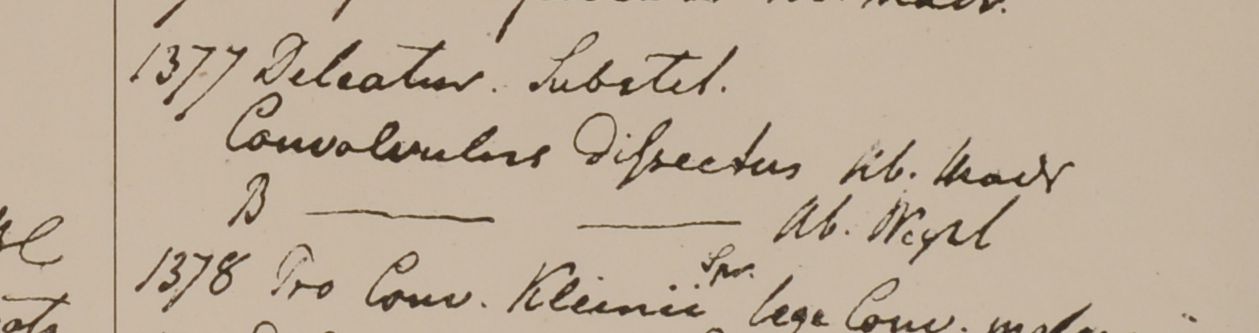 hb. Madr.
1377 Deleatur. Substit.
Convolvulus dissectus hb. Madr
B ——— ——— hb. Wight
1378 Pro Conv. Kleinii Spr. lege Conv.